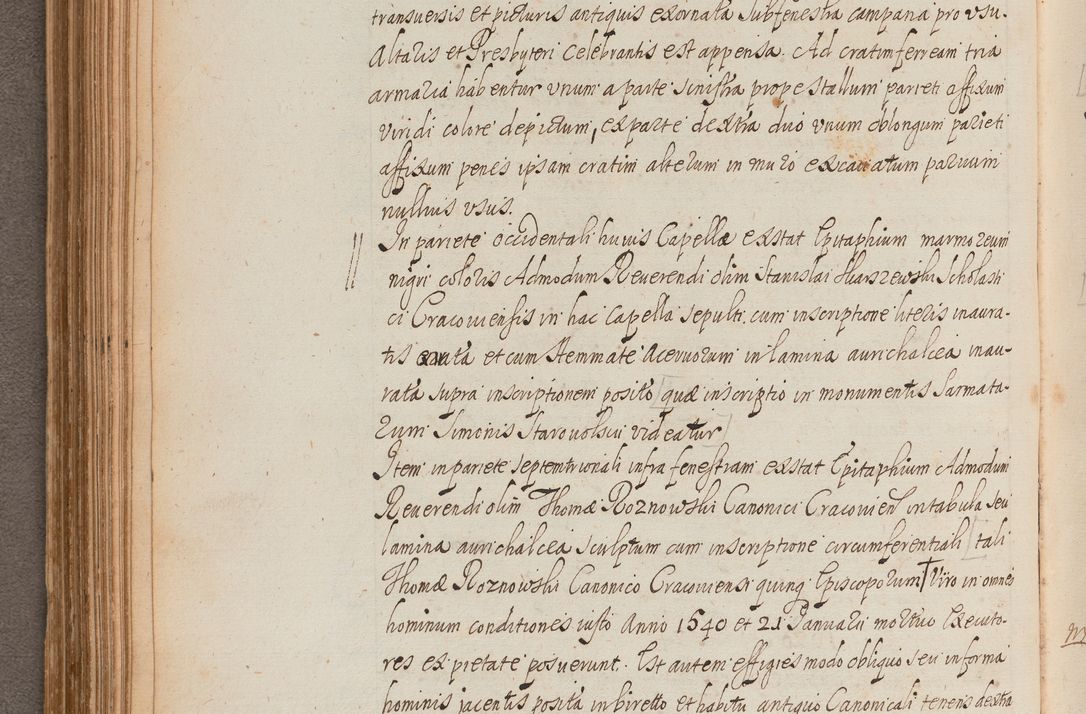 transuersis et picturis antiquis exornata subfenestra campana pro vsu.
Altaris et Presbyteri Celebrantis est appensa. Ad cratim ferream tria
armaria habentur vnum a parte sinistra prope stallum parieti affixum
viridi colore depictum, ex parte dextra duo vnum oblongum parieti
affixum penes ipsam cratim alterum in muro excauatum paruum
nullius vsus.
In pariete occidentali huius Capellæ exstat Epitaphium marmoreum
nigri coloris Admodum Reuerendi olim Stanislai Skarszewski Scholasti
ci Cracouiensis in hac Capella sepulti cum inscriptione literis inaura-
tis et cum Stemmate Aceruorum in lamina aurichalcea inau-
rata supra inscriptionem posito quæ inscriptio in monumentis Sarmata-
rum Simonis Starouolscij videatur
Item in pariete septemtrionali infra fenestram exstat Epitaphium Admodum
Reuerendi olim Thomæ Roznowski Canonici Cracouien in tabula seu
lamina aurichalcea sculptum cum inscriptione circumferentiali tali
Thomæ Roznowski Canonico Cracouiensi quinq Episcoporum † Viro in omnes
hominum conditiones iusto Anno 1540 et 21 Januarii mortuo Executo-
res ex pietate posuerunt. Est autem effigies modo obliquo seu in forma
hominis jacentis posita in biretto et habitu antiquo Canonicali tenens dextra